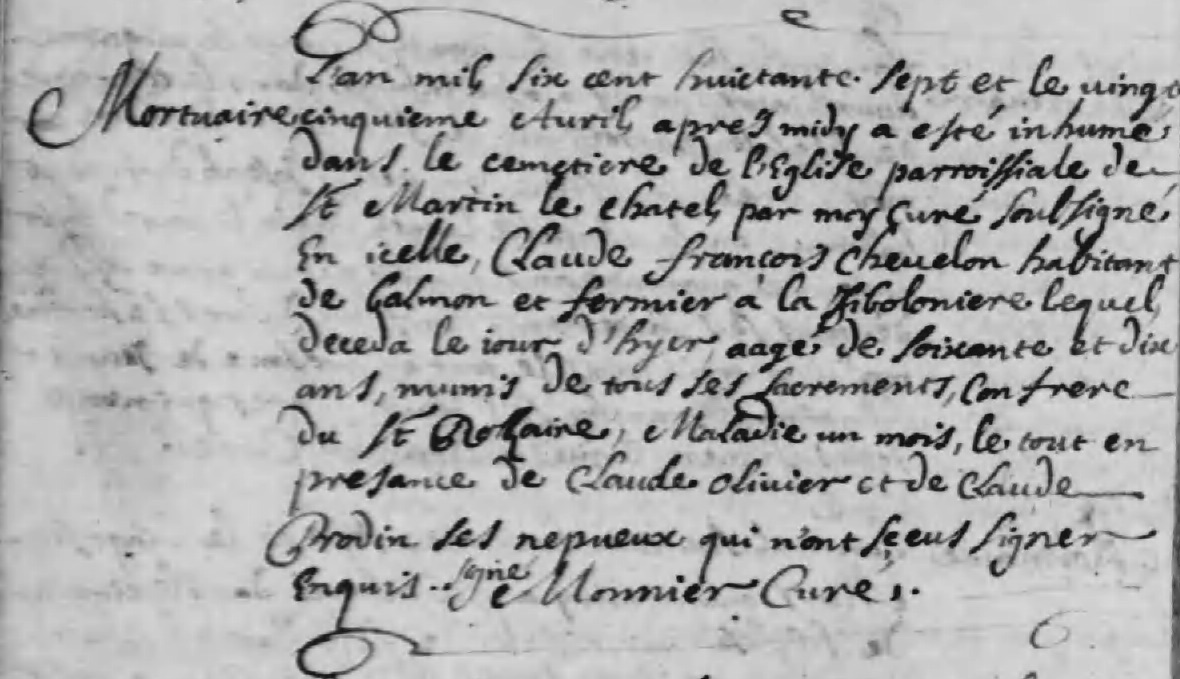 L'an mil six cent huictante sept et le vingt
Mortuaire cinquieme Avril apres midy a esté inhumé
dans le cemetiere de l'Eglise parroissiale de
St Martin le chatel par moy curé soulsigné
En icelle, Claude francois Chevelon habitant
de Calmon et fermier à la Tiboloniere lequel
deceda le iour d'hyer aagé de soixante et dix
ans, munis de tous ses sacrements, Confrere
du St Rosaire, Maladie un mois, le tout en
presance de Claude Olivier et de Claude
Brodin ses nepueux qui n'ont sceus signer
Enquis. signé Monnier Curé.